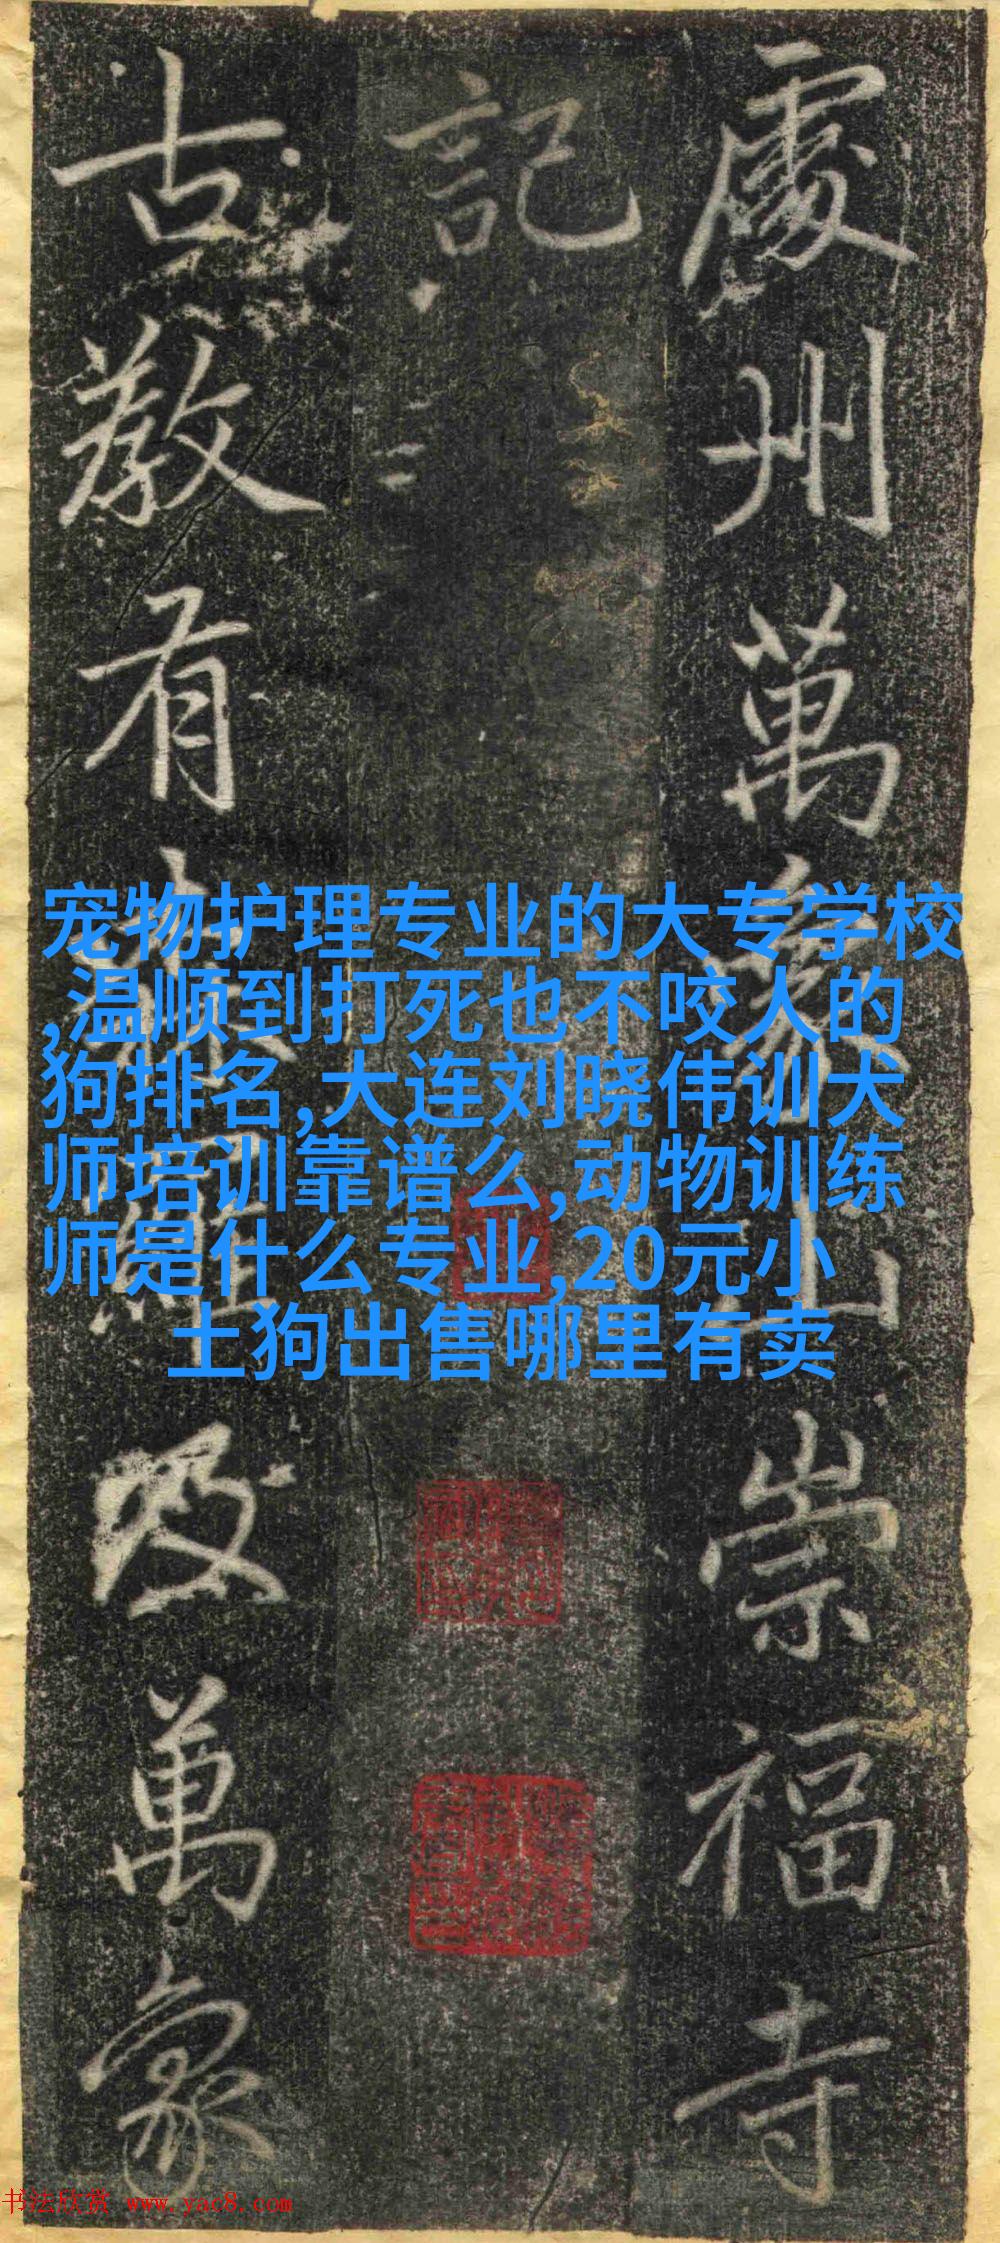 處州萬象山崇福寺
記
古教有森羅及萬象
宠物护理专业的大专学校
,温顺到打死也不咬人的
狗排名,大连刘晓伟训犬
师培训靠谱么,动物训练
师是什么专业,20元小
土狗出售哪里有卖
书法欣赏 www.yac8.com